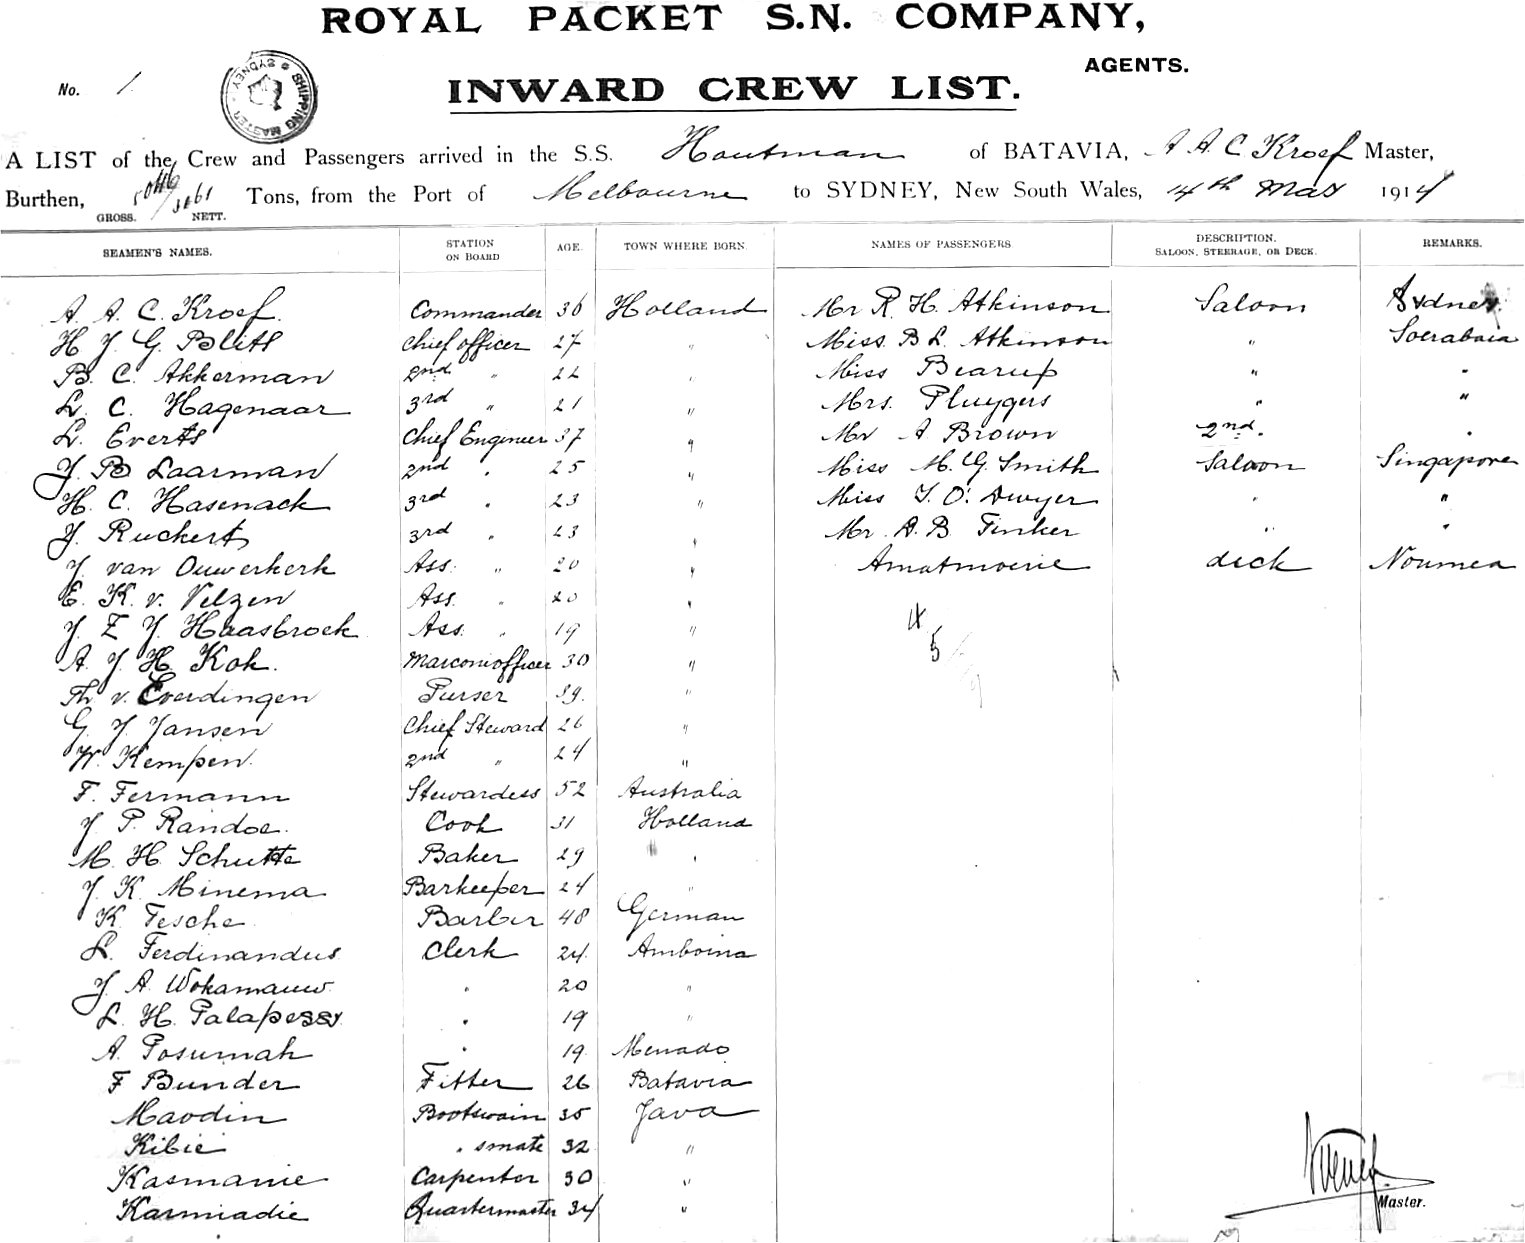 ROYAL PACKET S.N. COMPANY,
AGENTS.
No. 1
SYDNEY SHIPPING MASTER
INWARD CREW LIST.
A LIST of the Crew and Passengers arrived in the S.S. Houtman of BATAVIA, A A C Kroef Master,
Burthen, 5046/3061 Tons, from the Port of Melbourne to SYDNEY, New South Wales, 14th May 1914
GROSS. NETT.
SEAMEN'S NAMES. STATION ON BOARD AGE. TOWN WHERE BORN. NAMES OF PASSENGERS DESCRIPTION. SALOON, STEERAGE, OR DECK. REMARKS.
A. A. C. Kroef. Commander 36 Holland Mr R. H. Atkinson Saloon Sydney
H J. G. chief officer 27 " Miss B L. Atkinson " Soerabaia
B. C. Akkerman 2nd " 22 " Miss Bearup " "
L. C. Hagenaar 3rd " 21 " Mrs. Pluygers " "
L. Everts Chief Engineer 37 " Mr A Brown 2nd. "
J. B Laarman 2nd " 25 " Miss M. G. Smith Saloon Singapore
H. C. Hasenack 3rd " 23 " Miss T. O'. Dwyer " "
J. Ruckert 3rd " 23 " Mr. A. B. Tinker " "
J van Ouwerkerk Ass. " 20 " Amatmoerie deck Noumea
E. K. v. Velzen Ass. " 20 "
J. Z J. Haasbroek Ass. " 19 "
4
5
A. J. H. Kok. Marconiofficer 30 "
Th v. Everdingen Purser 39. "
G. J. Jansen Chief Steward 26 "
W. Kempen. 2nd " 24 "
F. Fermann Stewardess 52 Australia
J P. Randoe. Cook 31 Holland
M. H. Schutte Baker 29 "
J. K. Minema Barkeeper 24 "
K Tesche Barber 48 German
L. Ferdinandus Clerk 24. Amboina
J. A. Wokamauw " 20 "
L. H. Palapessy " 19 "
A. Posumah " 19. Menado
F Bunder Fitter 26 Batavia
Maodin Bootswain 35 Java
Kibie " smate 32 "
Kasmanie Carpenter 30 "
Karmiadie Quartermaster 34 "
Kroef.
Master.